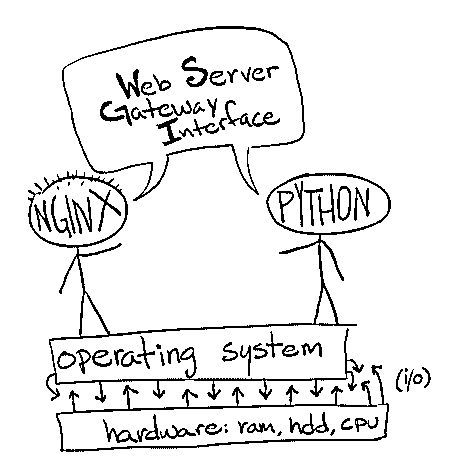 Web Server
Gateway
Interface
NGINX
PYTHON
operating system
(i/o)
hardware: ram, hdd, cpu